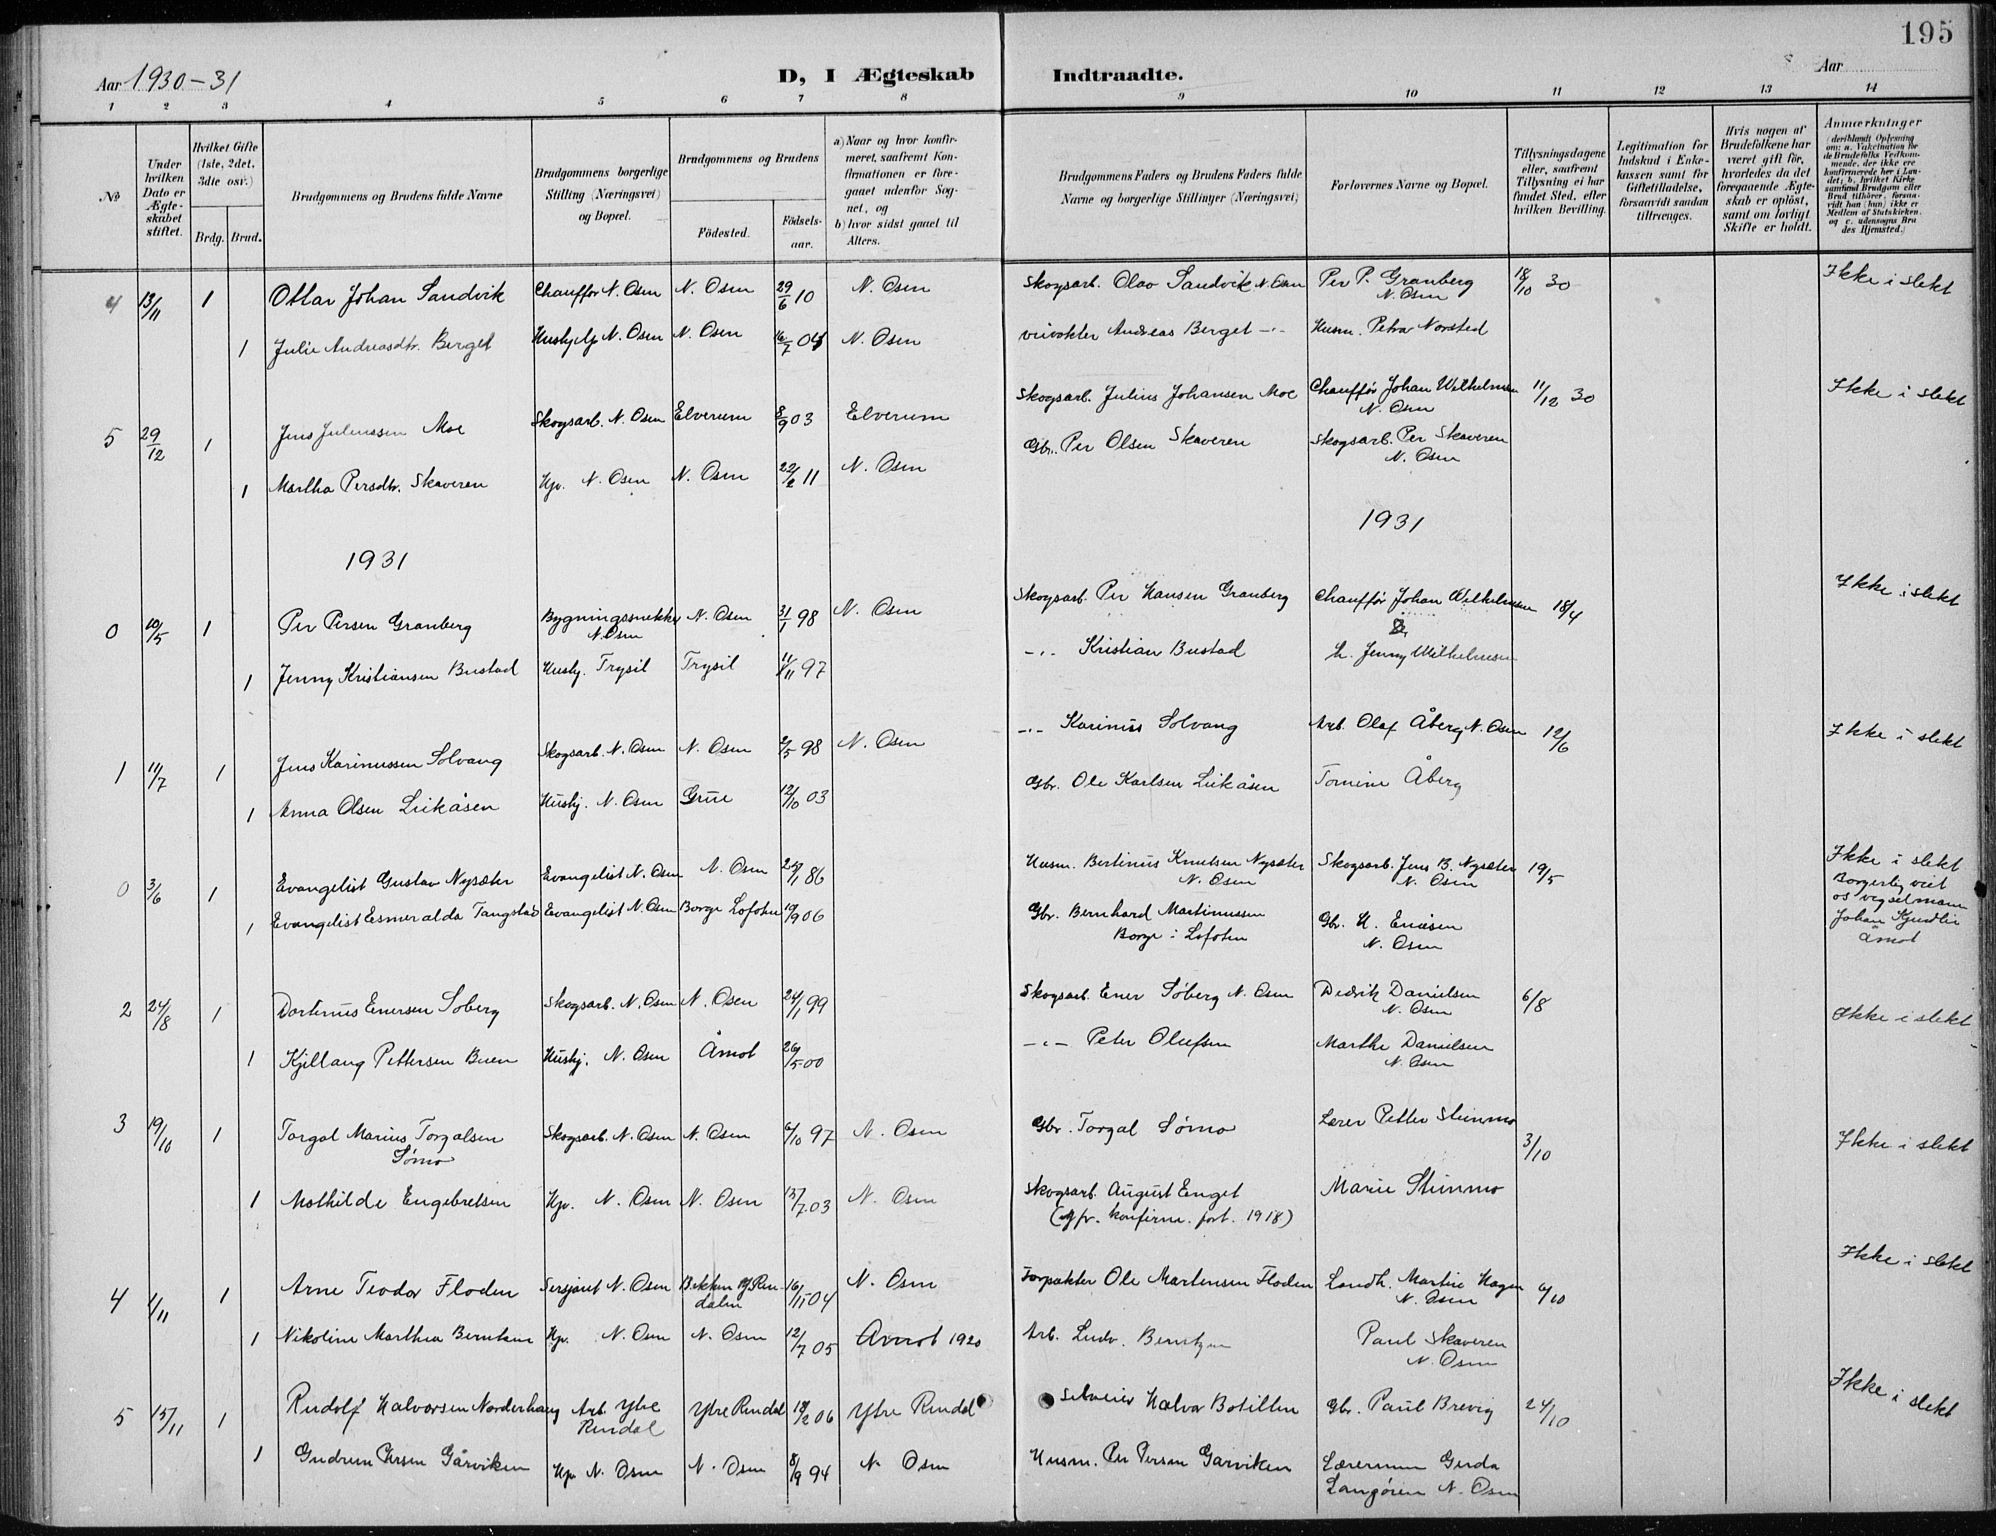 195
Aar 1930-31
D, I Ægteskab Indtraadte.
Aar
1 2 3 4 5 6 7 8 9 10 11 12 13 14
№
Under hvilken Dato er Ægteskabet stiftet.
Hvilket Gifte (1ste, 2det, 3die osv.)
Brdg. Brud.
Brudgommens og Brudens fulde Navne
Brudgommens borgerlige Stilling (Næringsvei) og Bopæl.
Brudgommens og Brudens
Födested.
Födsels-aar.
a) Naar og hvor konfirmeret, saafremt Konfirmationen er foregaaet udenfor Sognet, og
b) hvor sidst gaaet til Alters.
Brudgommens Faders og Brudens Faders fulde Navne og borgerlige Stillinger (Næringsvei)
Forlovernes Navne og Bopæl.
Tillysningsdagene eller, saafremt Tillysning ei har fundet Sted, efter hvilken Bevilling.
Legitimation for Indskud i Enkekassen samt for Giftetilladelse, forsaavidt saadan tiltrænges.
Hvis nogen af Brudefolkene har været gift för, hvorledes da det foregaaende Ægteskab er oplöst, samt om lovligt Skifte er holdt.
Anmærkninger (deriblandt Oplysning om: a. Vakcination for de Brudefolks Vedkommende, der ikke ere konfirmerede her i Landet; b. hvilket Kirkesamfund Brudgom eller Brud tilhörer, forsaavidt han (hun) ikke er Medlem af Statskirken, og c. udensogns Brudes Hjemsted.)
4 13/11 1 Ottar Johan Sandvik Chauffør N. Osen N. Osen 29/6 10 N. Osen Skogsarb. Olav Sandvik N. Osen Per P. Granberg N. Osen 18/10 30 Ikke i slekt
1 Julie Andreasdtr. Berget Hushjelp N. Osen N. Osen 16/7 04 N. Osen veivokter Andreas Berget -"- Husm. Petra Norsted
5 29/12 1 Jens Juliussen Moe Skogsarb. N. Osen Elverum 8/9 03 Elverum Skogsarb. Julius Johansen Moe Chauffør Johan Wilhelmsen N. Osen 11/12 30 Ikke i slekt
1 Martha Persdtr. Skaveren Hjv. N. Osen N. Osen 22/2 11 N. Osen Gbr. Per Olsen Skaveren Skogsarb. Per Skaveren N. Osen
1931 1931
0 10/5 1 Per Persen Granberg Bygningssnekker N. Osen N. Osen 31/1 98 N. Osen Skogsarb. Per Hansen Granberg Chauffør Johan Wilhelmsen 18/4 Ikke i slekt
1 Jenny Kristiansen Bustad Hushj. Trysil Trysil 11/11 97 -"- Kristian Bustad h. Jenny Wilhelmsen
1 11/7 1 Jens Karinussen Solvang Skogsarb. N. Osen N. Osen 2/5 98 N. Osen -"- Karinus Solvang Arb. Olaf Åberg N. Osen 12/6 Ikke i slekt
1 Anna Olsen Leikåsen Hushj. N. Osen Grue 12/10 03 Gbr. Ole Karlsen Leikåsen Tomine Åberg
0 3/6 1 Evangelist Gustav Nysæter Evangelist N. Osen N. Osen 25/1 86 Husm. Bertinus Knutsen Nysæter N. Osen Skogsarb. Jens B. Nysæter N. Osen 19/5 Ikke i slekt
1 Evangelist Esmeralda Tangstad Evangelist N. Osen Borge Lofoten 19/9 06 Gbr. Bernhard Martinussen Borge i Lofoten Gbr. H. N. Osen Borgerlig viet os vigselmann Johan Åmot
2 24/8 1 Dortinus Enersen Søberg Skogsarb. N. Osen N. Osen 24/1 99 Skogsarb. Ener Søberg N. Osen Dedrik Danielsen N. Osen 6/8 Ikke i slekt
1 Kjellaug Pettersen Buen Hushj. N. Osen Åmot 26/5 00 -"- Peter Olufsen Marthe Danielsen N. Osen
3 19/10 1 Torgal Marius Torgalsen Sømo Skogsarb. N. Osen N. Osen 6/10 97 N. Osen Gbr. Torgal Sømo Lærer Petter Stenmo 3/10 Ikke i slekt
1 Mathilde Engebretsen Hjv. N. Osen N. Osen 15/7 03 N. Osen Skogsarb. August Enget (Jfr. konfirm. fort. 1918) Marie Stenmo
4 1/11 1 Arne Teodor Floden Sersjant N. Osen Bekken Y. Rendalen 16/11 04 N. Osen Forpakter Ole Martensen Floden Landh. Martin Hagen N. Osen 6/10 Ikke i slekt
1 Nikoline Marthea Berntsen Hjv. N. Osen N. Osen 12/7 05 Åmot 1920 Arb. Ludv. Berntzen Paul Skaveren N. Osen
5 15/11 1 Rudolf Halvorsen Norderhaug Arb. Ytre Rendal Ytre Rendal 18/2 06 Ytre Rendal Selveier Halvor Botillen Gbr. Paul Brevig 24/10 Ikke i slekt
1 Gudrun Persen Gårviken Hjv. N. Osen N. Osen 8/9 94 N. Osen Husm. Per Persen Garviken Lærerinne Gerda Langøren N. Osen